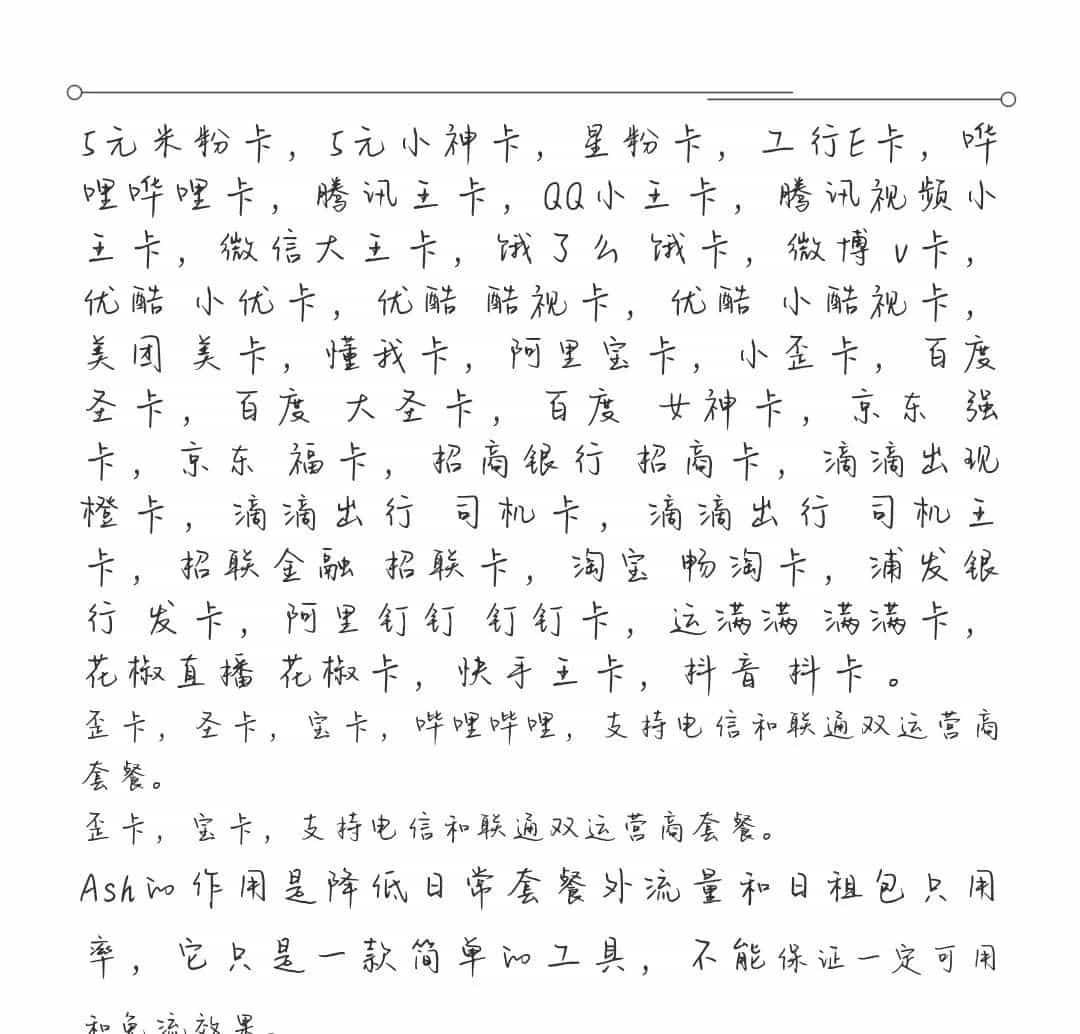 5元米粉卡，5元小神卡，星粉卡，工行E卡，哗
哩哗哩卡，腾讯王卡，QQ小王卡，腾讯视频小
王卡，微信大王卡，饿了么 饿卡，微博 v卡，
优酷 小优卡，优酷 酷视卡，优酷 小酷视卡，
美团 美卡，懂我卡，阿里宝卡，小歪卡，百度
圣卡，百度 大圣卡，百度 女神卡，京东 强
卡，京东 福卡，招商银行 招商卡，滴滴出现
橙卡，滴滴出行 司机卡，滴滴出行 司机王
卡，招联金融 招联卡，淘宝 畅淘卡，浦发银
行 发卡，阿里钉钉 钉钉卡，运满满 满满卡，
花椒直播 花椒卡，快手王卡，抖音 抖卡。
歪卡，圣卡，宝卡，哔哩哔哩，支持电信和联通双运营商
套餐。
歪卡，宝卡，支持电信和联通双运营商套餐。
Ash的作用是降低日常套餐外流量和日租包只用
率，它只是一款简单的工具，不能保证一定可用
和免流效果。